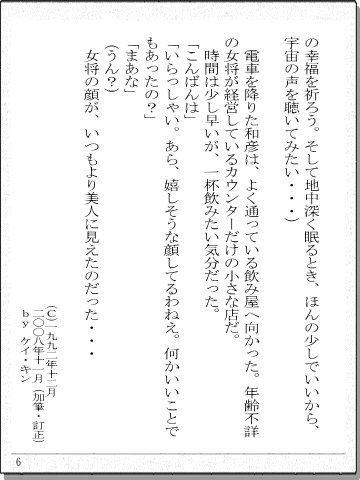 の幸福を祈ろう。そして地中深く眠るとき、ほんの少しでいいから、
宇宙の声を聴いてみたい・・・)
電車を降りた和彦は、よく通っている飲み屋へ向かった。年齢不詳
の女将が経営しているカウンターだけの小さな店だ。
時間は少し早いが、一杯飲みたい気分だった。
「こんばんは」
「いらっしゃい。あら、嬉しそうな顔してるわねえ。何かいいことで
もあったの?」
「まあな」
(うん?)
女将の顔が、いつもより美人に見えたのだった・・・
(C)一九九二年十二月
二〇〇八年十一月(加筆・訂正)
by ケイ・キン
6